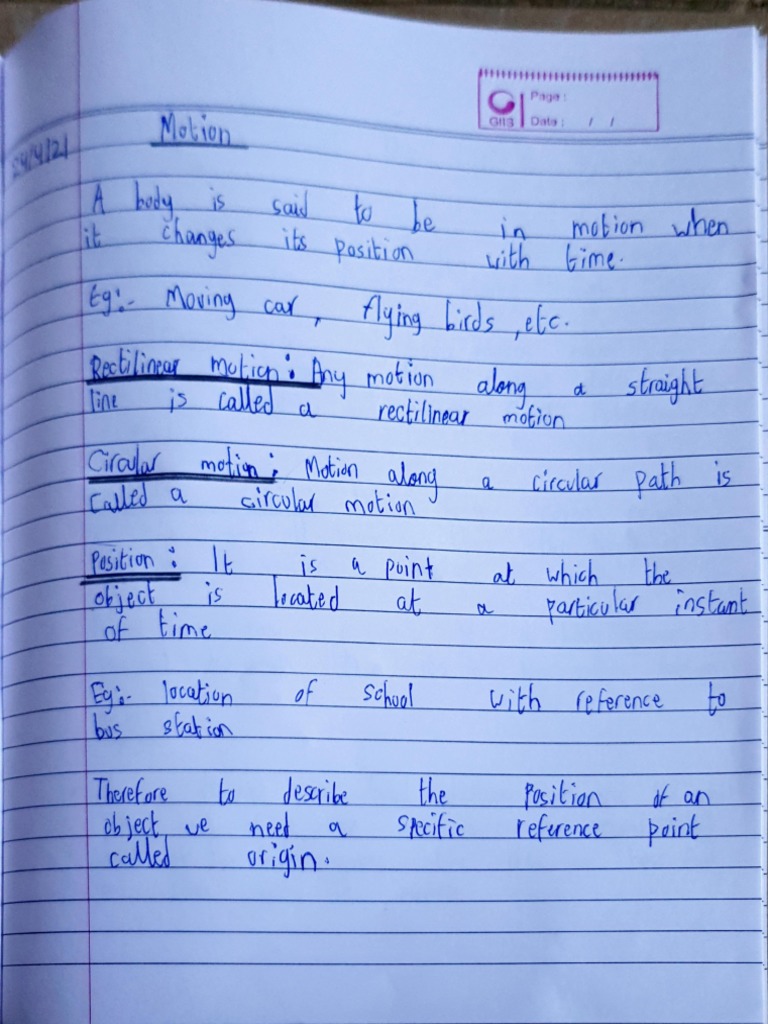 GIIS
Page :
Date : / /
24/4/21
Motion
A body is said to be in motion when
it changes its position with time.
Eg:- Moving car, flying birds, etc.
Rectilinear motion: Any motion along a straight
line is called a rectilinear motion
Circular motion: Motion along a circular path is
called a circular motion
Position: It is a point at which the
object is located at a particular instant
of time
Eg:- location of school with reference to
bus station
Therefore to describe the position of an
object, we need a specific reference point
called origin.